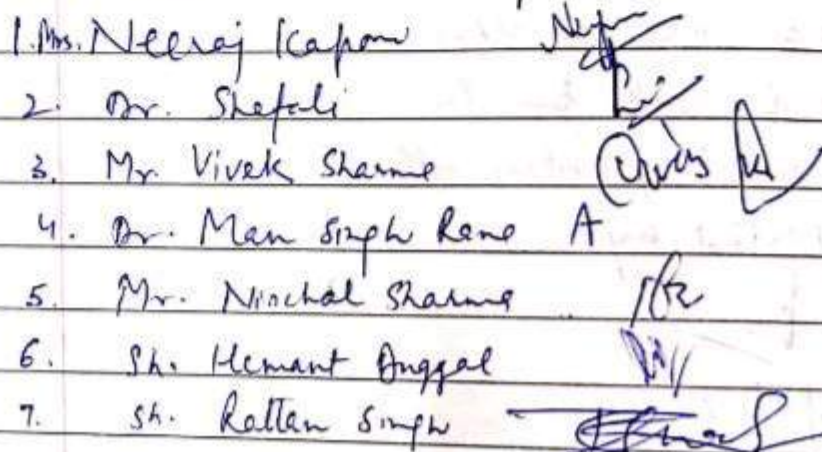 1. Mrs. Neeraj Kapoor
2. Dr. Shefali
3. Mr Vivek Sharma
4. Dr. Man Singh Rana A
5. Mr. Nischal Sharma
6. Sh. Hemant Duggal
7. Sh. Rattan Singh